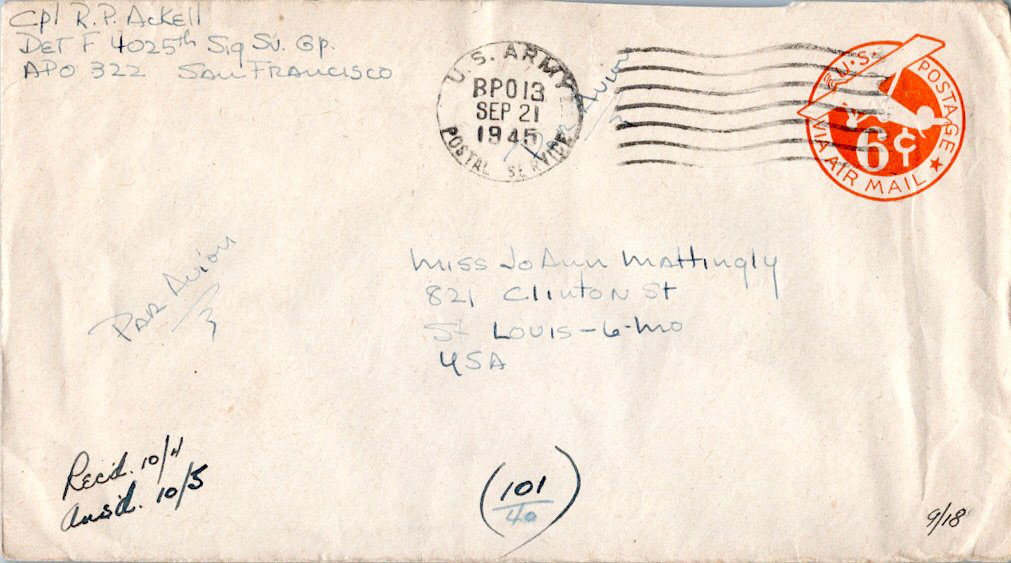 Cpl R.P. Ackell
Det F 4025th Sig Sv. Gp.
APO 322 San Francisco
U.S. ARMY
BPO 13
SEP 21
1945
POSTAL SERVICE
Par Avion
U.S. POSTAGE
6¢
VIA AIR MAIL
Par Avion
Miss JoAnn Mattingly
821 Clinton St
St Louis-6-Mo
USA
Rec'd. 10/4
Ans'd. 10/5
(101
40)
9/18